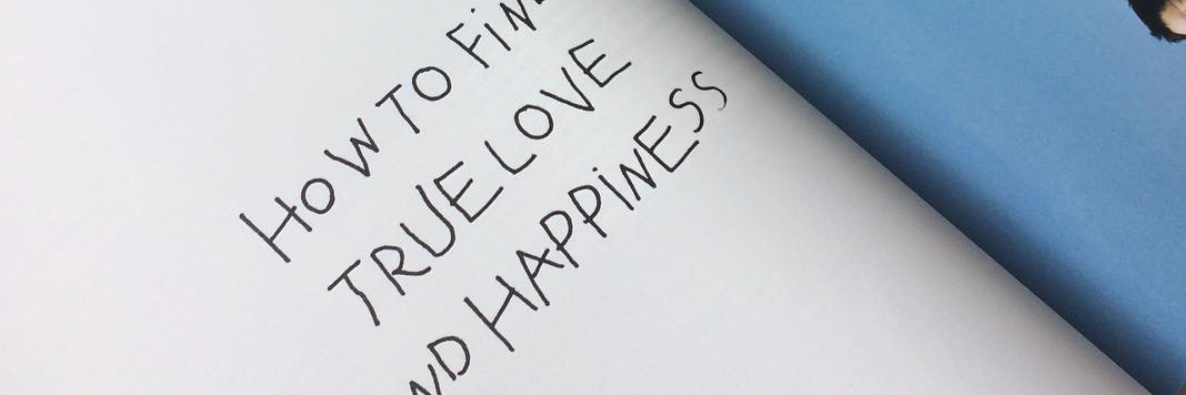 HOW TO FIN
TRUE LOVE
ND HAPPINESS